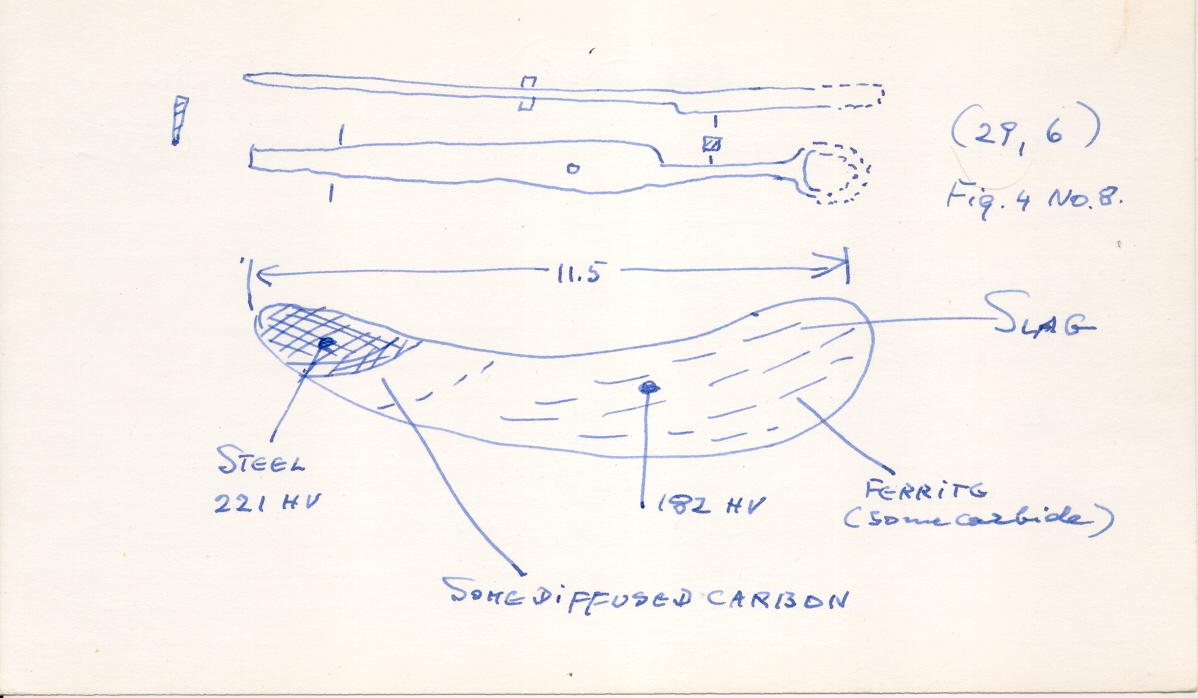 (29, 6)
Fig. 4 No. 8.
11.5
SLAG
STEEL
221 HV
182 HV
FERRITE
(some carbide)
SOME DIFFUSED CARBON